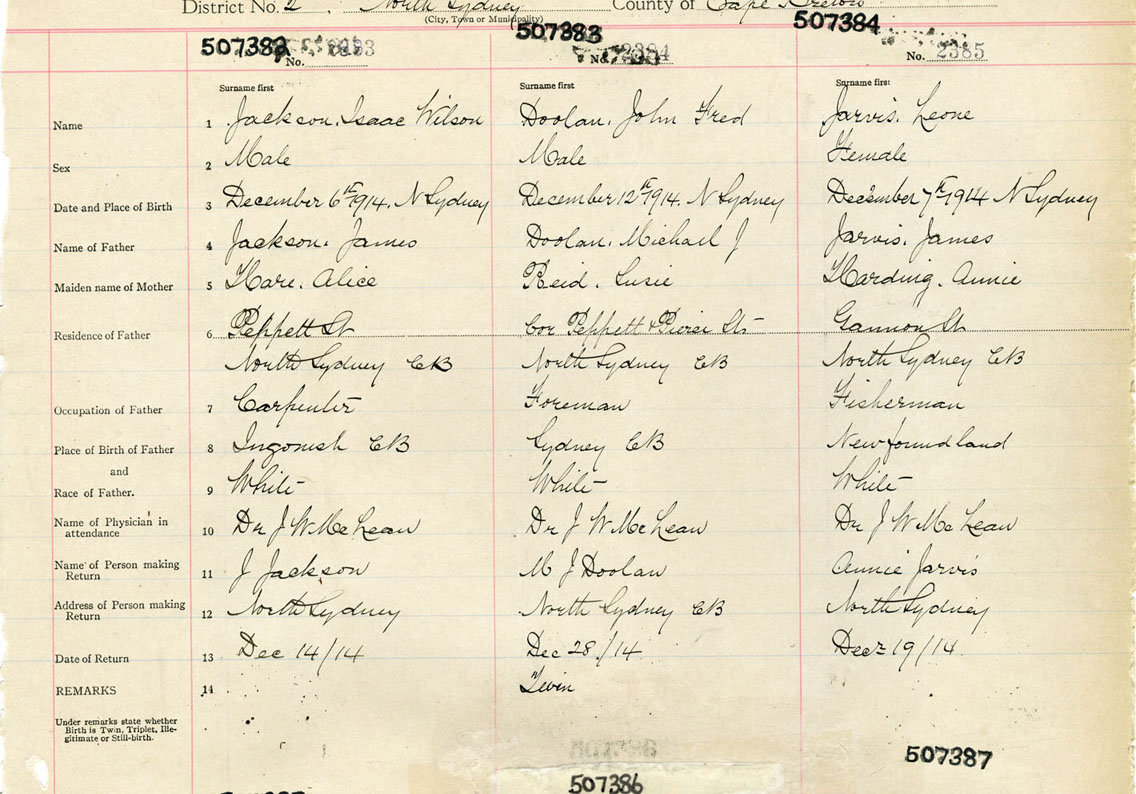 District No. 2, North Sydney County of Cape Breton
(City, Town or Municipality)
507382 No. 507383 No. 2384 507384 No. 2385
Surname first Surname first Surname first
Name 1 Jackson. Isaac Wilson Doolan. John Fred Jarvis. Leone
Sex 2 Male Male Female
Date and Place of Birth 3 December 6th 1914. N Sydney December 12th 1914. N Sydney December 7th 1914 N Sydney
Name of Father 4 Jackson. James Doolan. Michael J Jarvis. James
Maiden name of Mother 5 Hare. Alice Reid. Susie Harding. Annie
Residence of Father 6 Peppett St Cor Peppett & Pierce Sts Gannon St
North Sydney CB North Sydney CB North Sydney CB
Occupation of Father 7 Carpenter Foreman Fisherman
Place of Birth of Father 8 Ingonish CB Sydney CB Newfoundland
and
Race of Father. 9 White White White
Name of Physician in attendance 10 Dr J W McLean Dr J W McLean Dr J W McLean
Name of Person making Return 11 J Jackson M J Doolan Annie Jarvis
Address of Person making Return 12 North Sydney North Sydney CB North Sydney
Date of Return 13 Dec 14/14 Dec 28/14 Dec 19/14
REMARKS 14 Twin
Under remarks state whether
Birth is Twin, Triplet, Ille-
gitimate or Still-birth.
507386 507387